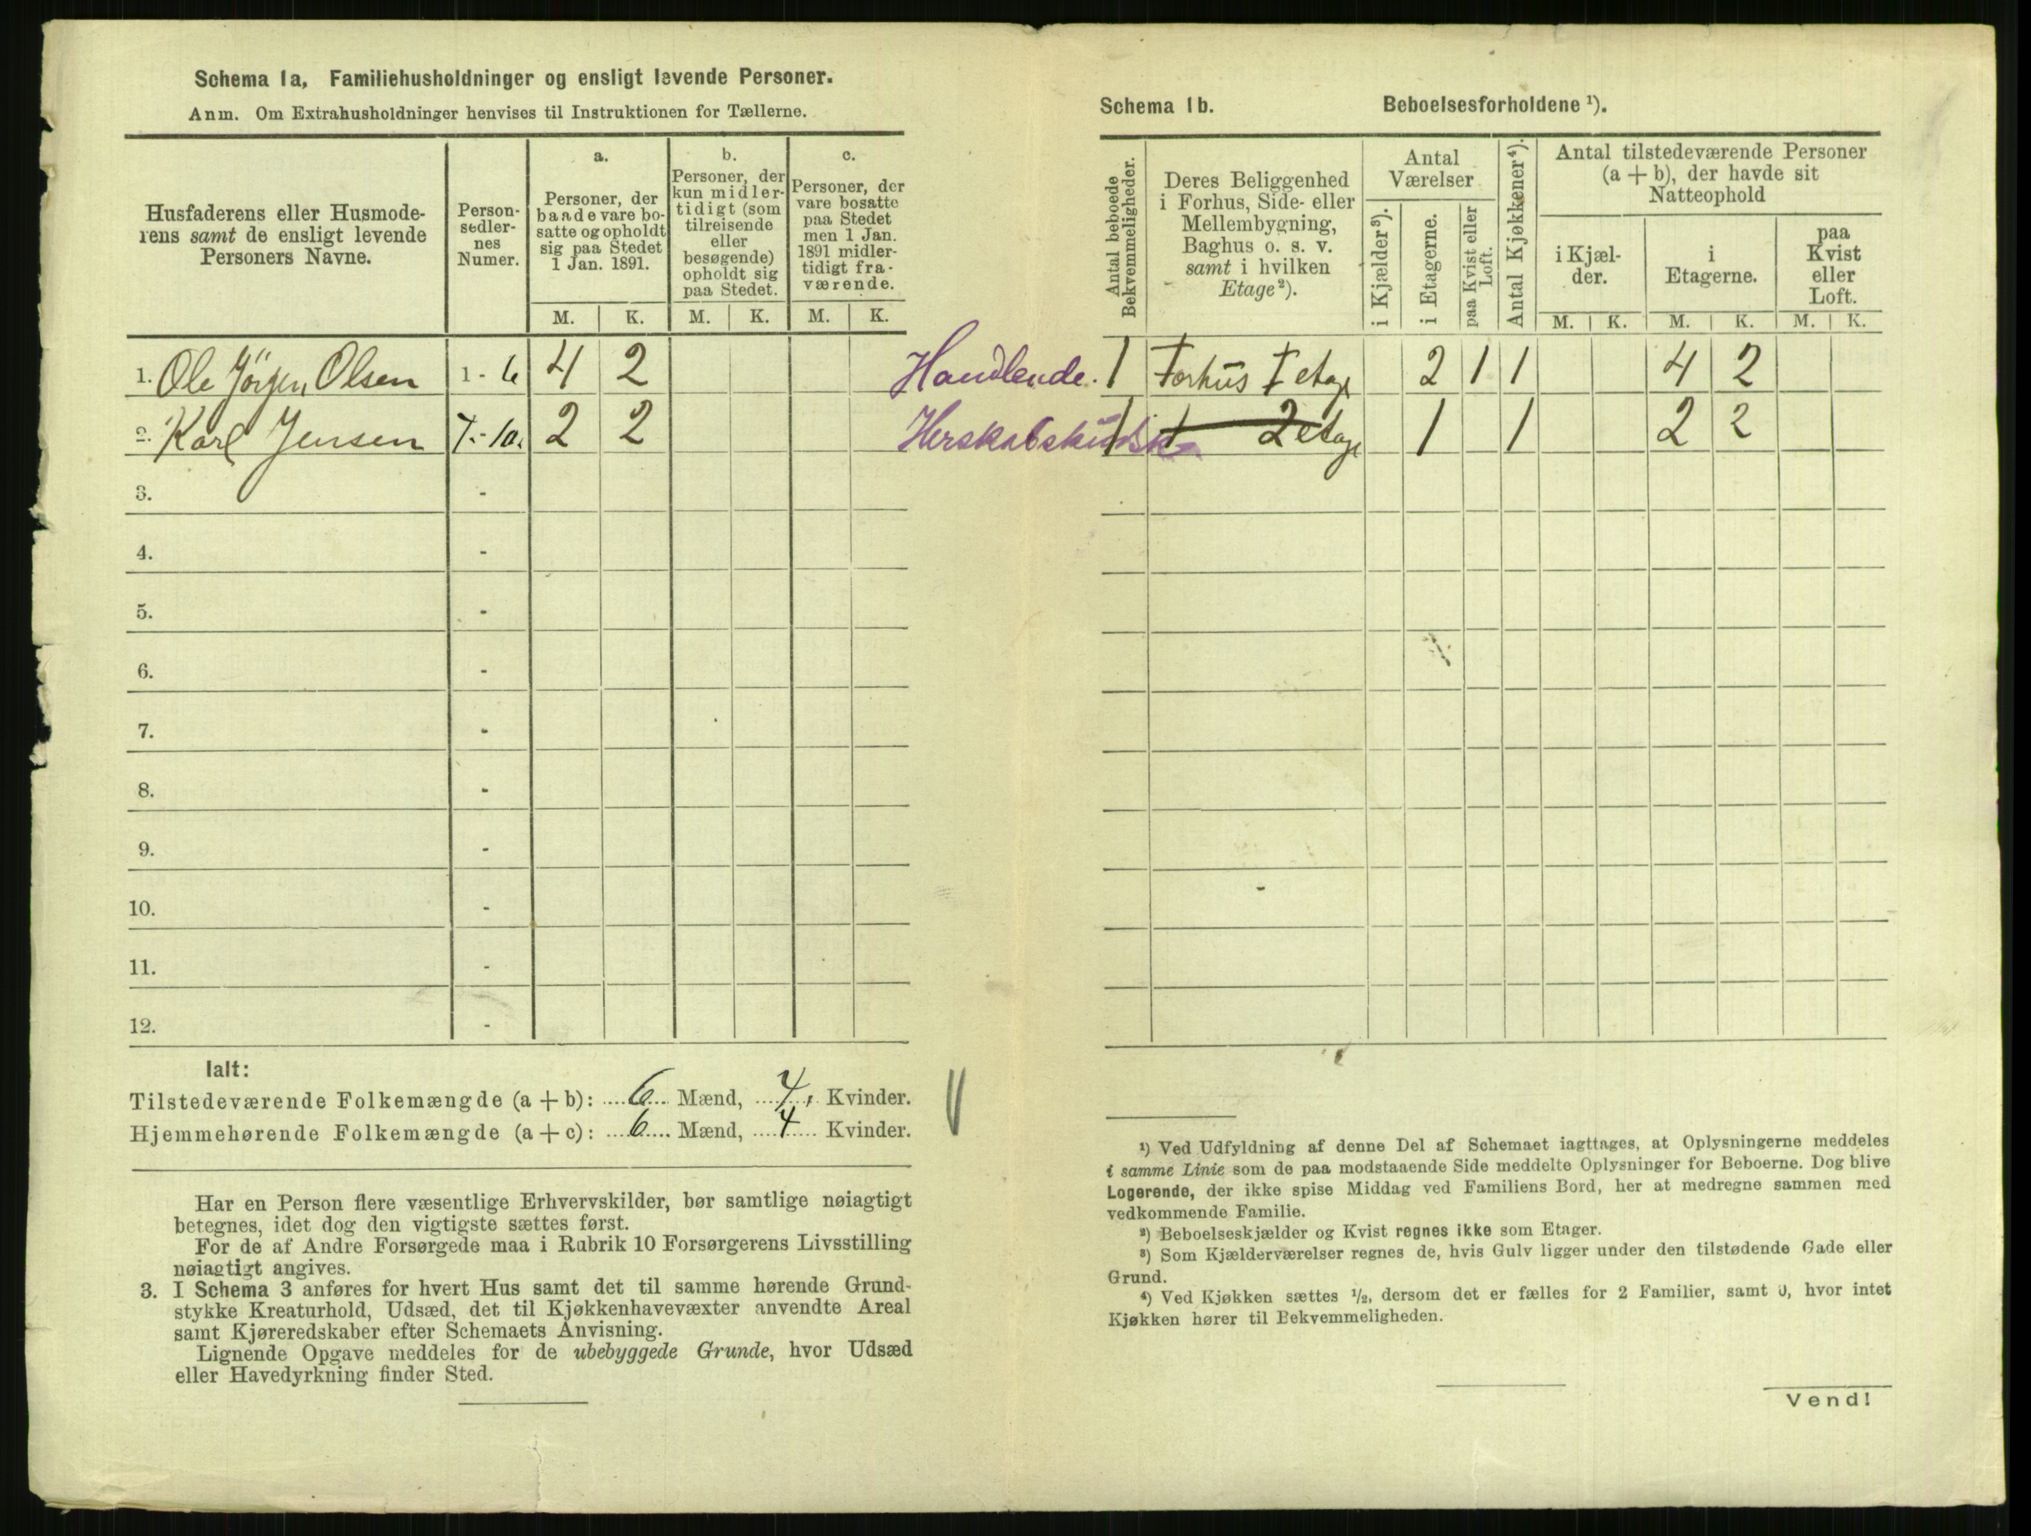 Schema 1a, Familiehusholdninger og ensligt levende Personer.
Anm. Om Extrahusholdninger henvises til Instruktionen for Tællerne.
Husfaderens eller Husmode-
rens samt de ensligt levende
Personers Navne.
Person-
sedler-
nes
Numer.
a.
Personer, der
baade vare bo-
satte og opholdt
sig paa Stedet
1 Jan. 1891.
b.
Personer, der
kun midler-
tidigt (som
tilreisende
eller
besøgende)
opholdt sig
paa Stedet.
c.
Personer, der
vare bosatte
paa Stedet
men 1 Jan.
1891 midler-
tidigt fra-
værende.
M. K. M. K. M. K.
1. Ole Jörgen Olsen 1 - 6 4 2 Handlende.
2. Karl Jensen 7 - 10. 2 2
3. -
4. -
5. -
6. -
7. -
8. -
9. -
10. -
11. -
12. -
Ialt:
Tilstedeværende Folkemængde (a + b): 6 Mænd, 4, Kvinder.
Hjemmehørende Folkemængde (a + c): 6 Mænd, 4 Kvinder.
Har en Person flere væsentlige Erhvervskilder, bør samtlige nøiagtigt
betegnes, idet dog den vigtigste sættes først.
For de af Andre Forsørgede maa i Rubrik 10 Forsørgerens Livsstilling
nøiagtigt angives.
3. I Schema 3 anføres for hvert Hus samt det til samme hørende Grund-
stykke Kreaturhold, Udsæd, det til Kjøkkenhavevæxter anvendte Areal
samt Kjøreredskaber efter Schemaets Anvisning.
Lignende Opgave meddeles for de ubebyggede Grunde, hvor Udsæd
eller Havedyrkning finder Sted.
Schema 1b. Beboelsesforholdene ¹).
Antal beboede
Bekvemmeligheder.
Deres Beliggenhed
i Forhus, Side- eller
Mellembygning,
Baghus o. s. v.
samt i hvilken
Etage²).
Antal
Værelser
i Kjælder³).
i Etagerne.
paa Kvist eller
Loft.
Antal Kjøkkener⁴).
Antal tilstedeværende Personer
(a + b), der havde sit
Natteophold
i Kjæl-
der.
i
Etagerne.
paa
Kvist
eller
Loft.
M. K. M. K. M. K.
1 Forhus I etage 2 1 1 4 2
1 2 etage 1 1 2 2
¹) Ved Udfyldning af denne Del af Schemaet iagttages, at Oplysningerne meddeles
i samme Linie som de paa modstaaende Side meddelte Oplysninger for Beboerne. Dog blive
Logerende, der ikke spise Middag ved Familiens Bord, her at medregne sammen med
vedkommende Familie.
²) Beboelseskjælder og Kvist regnes ikke som Etager.
³) Som Kjælderværelser regnes de, hvis Gulv ligger under den tilstødende Gade eller
Grund.
⁴) Ved Kjøkken sættes ½, dersom det er fælles for 2 Familier, samt 0, hvor intet
Kjøkken hører til Bekvemmeligheden.
Vend!